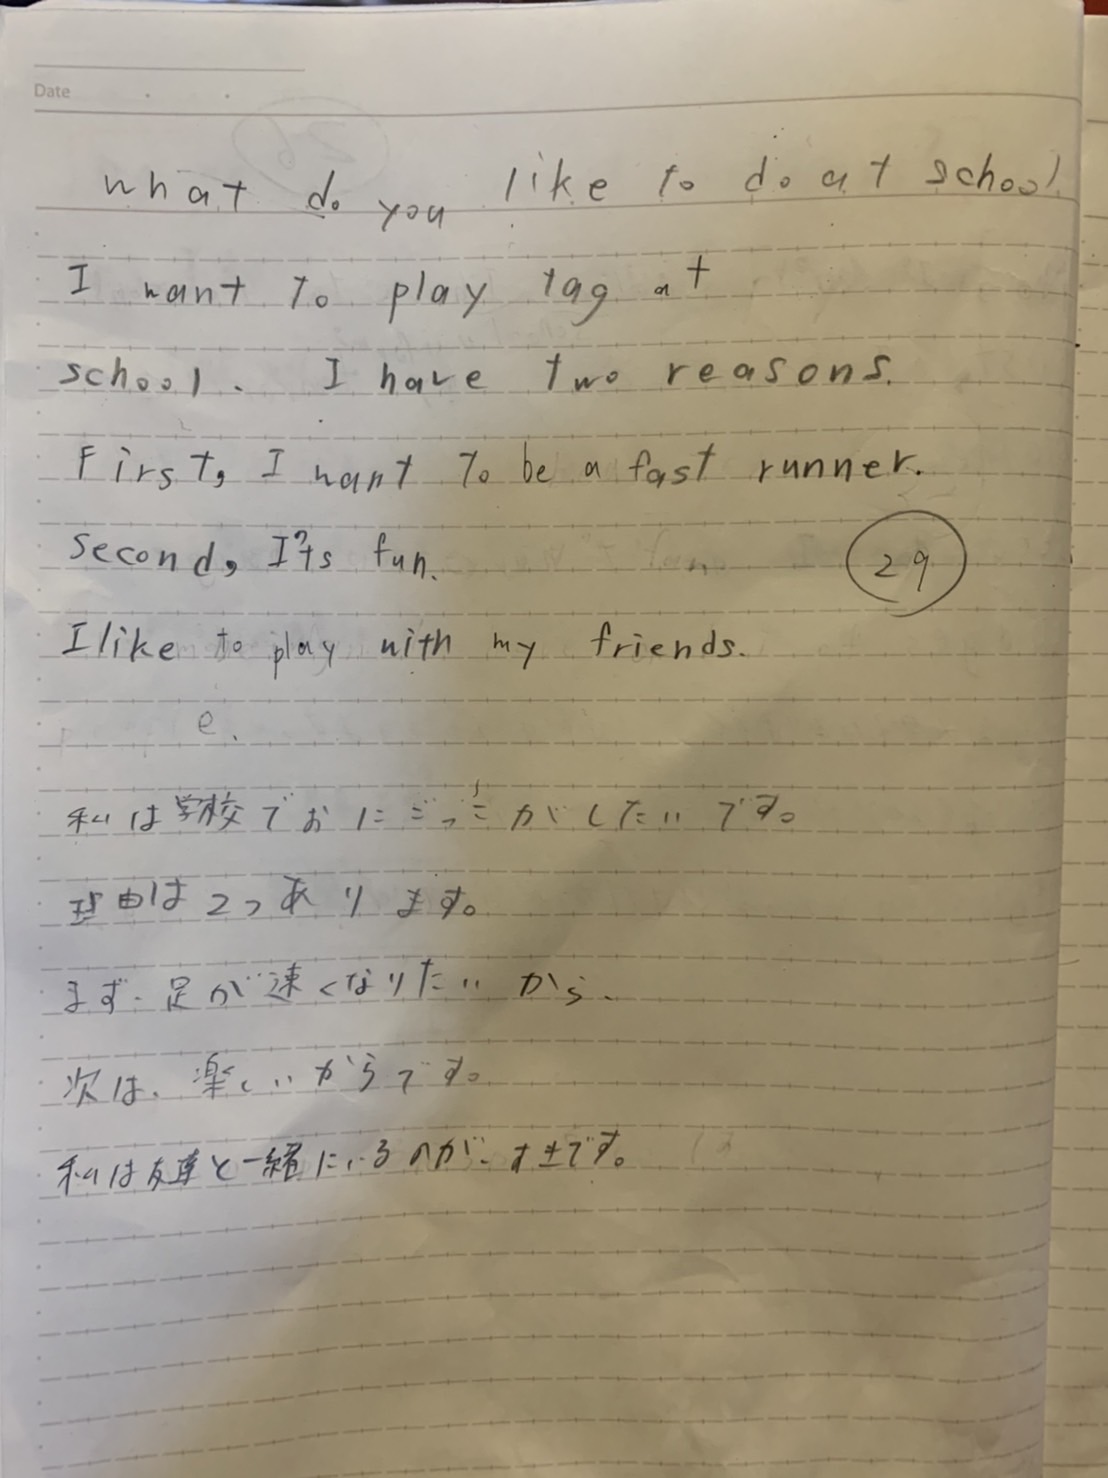 Date
What do you like to do at school
I want to play tag at
school. I have two reasons.
First, I want to be a fast runner.
Second, It's fun.
29
I like to play with my friends.
e.
私は学校でおにごっこがしたいです。
理由は2つあります。
まず、足が速くなりたいから、
次は、楽しいからです。
私は友達と一緒にいるのが、すきです。